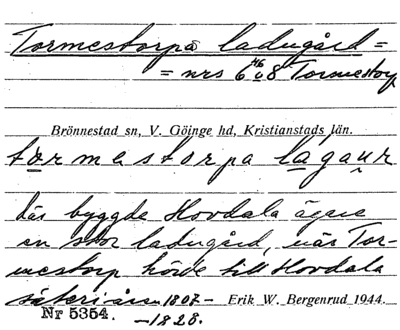 Tormestorpa ladugård =
= nrs 6 o 8 Tormestorp
Brönnestad sn, V. Göinge hd, Kristianstads län.
tormestorpa lagaur
där byggde Hovdala ägare
en stor ladugård, när Tor-
mestorp hörde till Hovdala
säteri åren 1807-
Erik W. Bergenrud 1944.
Nr 5354.
-1828.